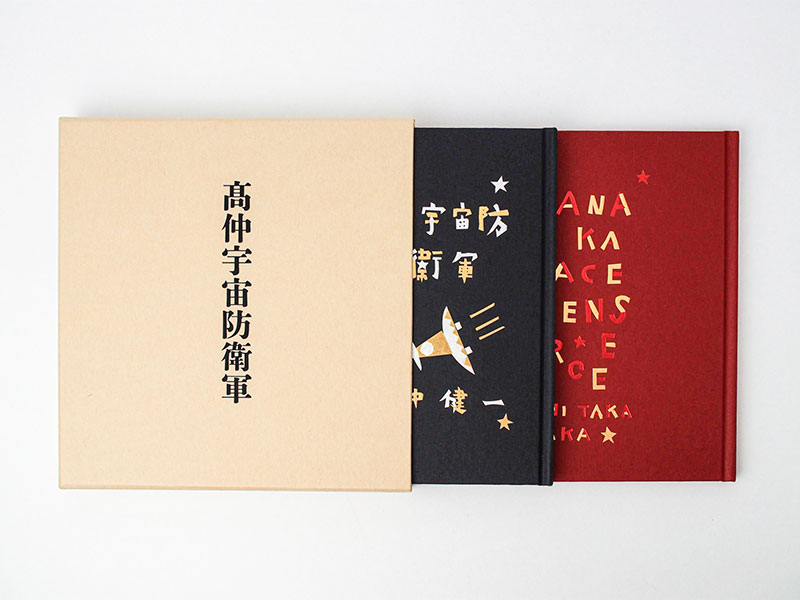 髙仲宇宙防衛軍
宇宙防
衛軍
仲健一
ANA
KA
ACE
ENS
R E
CE
HI TAKA
AKA